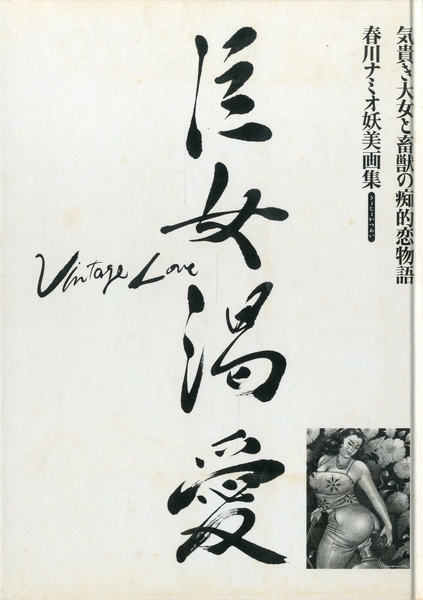 気貴き大女と畜獣の痴的恋物語
春川ナミオ妖美画集
きょじょかつあい
巨女渇愛
Vintage Love